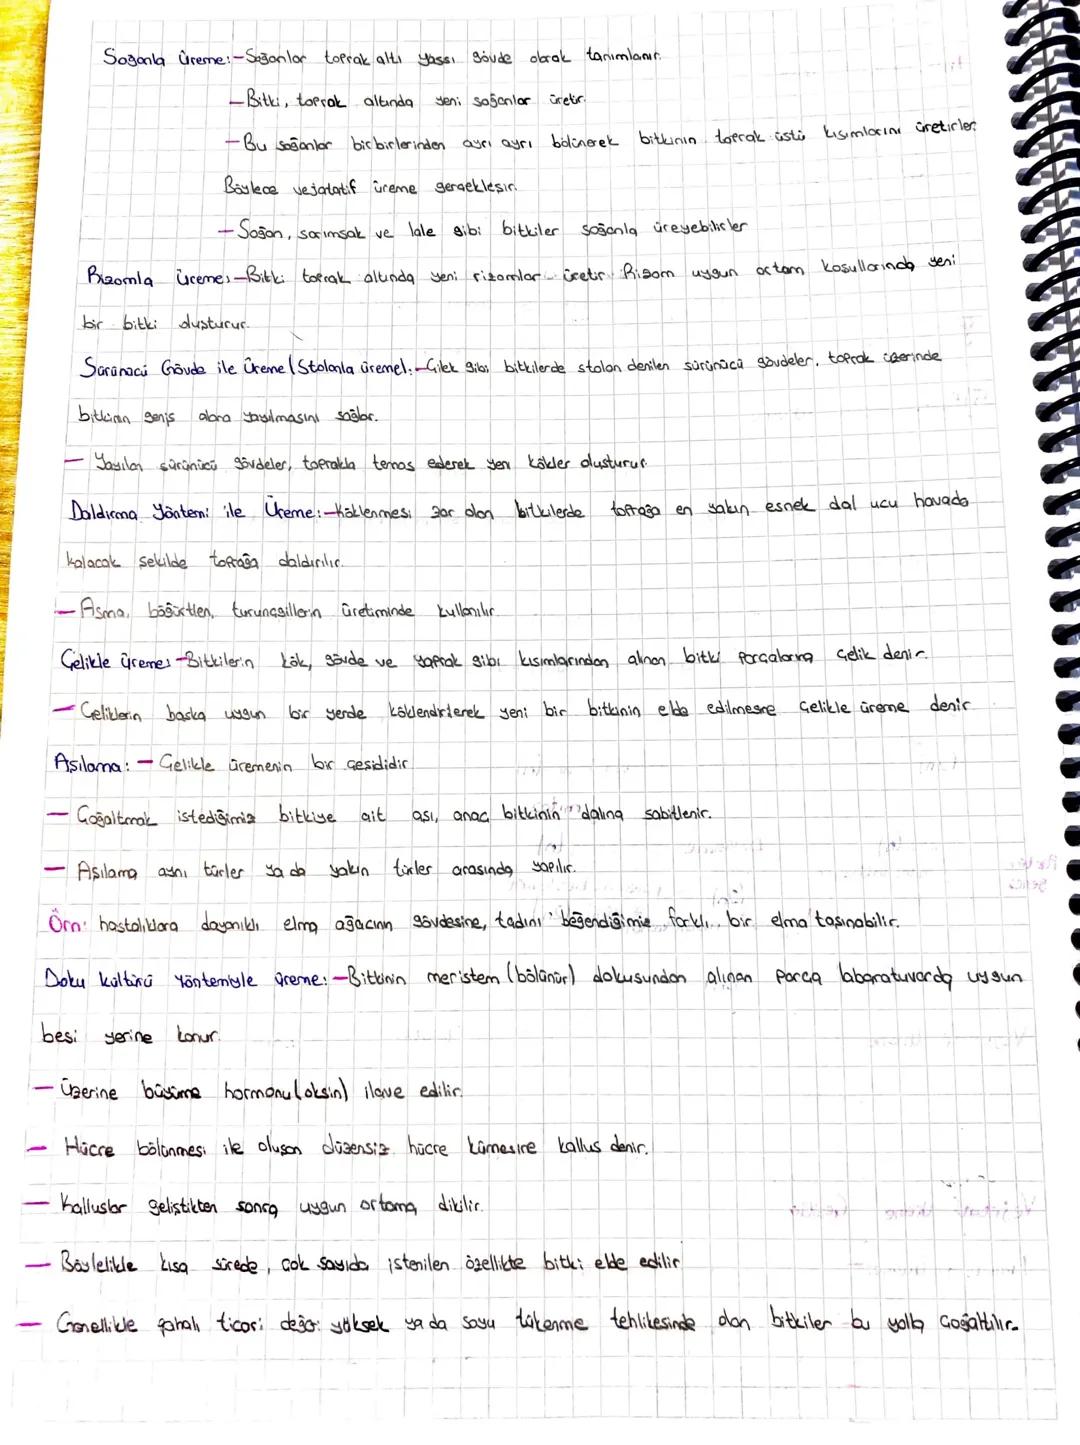 Soğanla Üreme:-Soğanlar toprak altı yassı gövde olarak tanımlanır.
-Bitki, toprak altında yeni soğanlar üretir.
-Bu soğanlar birbirlerinden ayrı ayrı bölünerek bitkinin toprak üstü kısımlarını üretirler.
Böylece vejatatif üreme gerçekleşir.
-Soğan, sarımsak ve lale gibi bitkiler soğanla üreyebilirler
Rizomla Üreme:-Bitki toprak altında yeni rizomlar üretir. Rizom uygun ortam koşullarında yeni
bir bitki oluşturur.
Sürünücü Gövde ile Üreme (Stolonla üreme):-Çilek gibi bitkilerde stolon denilen sürünücü gövdeler, toprak üzerinde
bitkinin geniş alana yayılmasını sağlar.
- Yayılan sürünücü gövdeler, toprakla temas ederek yeni kökler oluşturur.
Daldırma Yöntemi ile Üreme:-Köklenmesi zor olan bitkilerde toprağa en yakın esnek dal ucu havada
kalacak şekilde toprağa daldırılır.
- Asma, böğürtlen, turunçgillerin üretiminde kullanılır.
Çelikle üreme:-Bitkilerin kök, gövde ve yaprak gibi kısımlarından alınan bitki parçalarına çelik denir.
- Çeliklerin başka uygun bir yerde köklendirilerek yeni bir bitkinin elde edilmesine çelikle üreme denir
Aşılama: - Çelikle üremenin bir çeşididir
- Çoğaltmak istediğimiz bitkiye ait aşı, anaç bitkinin dalına sabitlenir.
- Aşılama aynı türler ya da yakın türler arasında yapılır.
Örn: hastalıklara dayanıklı elma ağacının gövdesine, tadını beğendiğimiz farklı bir elma taşınabilir.
Doku kültürü Yöntemiyle Üreme:-Bitkinin meristem (bölünür) dokusundan alınan parça laboratuvarda uygun
besi yerine konur.
- Üzerine büyüme hormonu (oksin) ilave edilir.
- Hücre bölünmesi ile oluşan düzensiz hücre kümesine kallus denir.
- Kalluslar geliştikten sonra uygun ortama dikilir.
- Böylelikle kısa sürede, çok sayıda istenilen özellikte bitki elde edilir
- Genellikle pahalı ticari değeri yüksek ya da soyu tükenme tehlikesinde olan bitkiler bu yolla çoğaltılır.